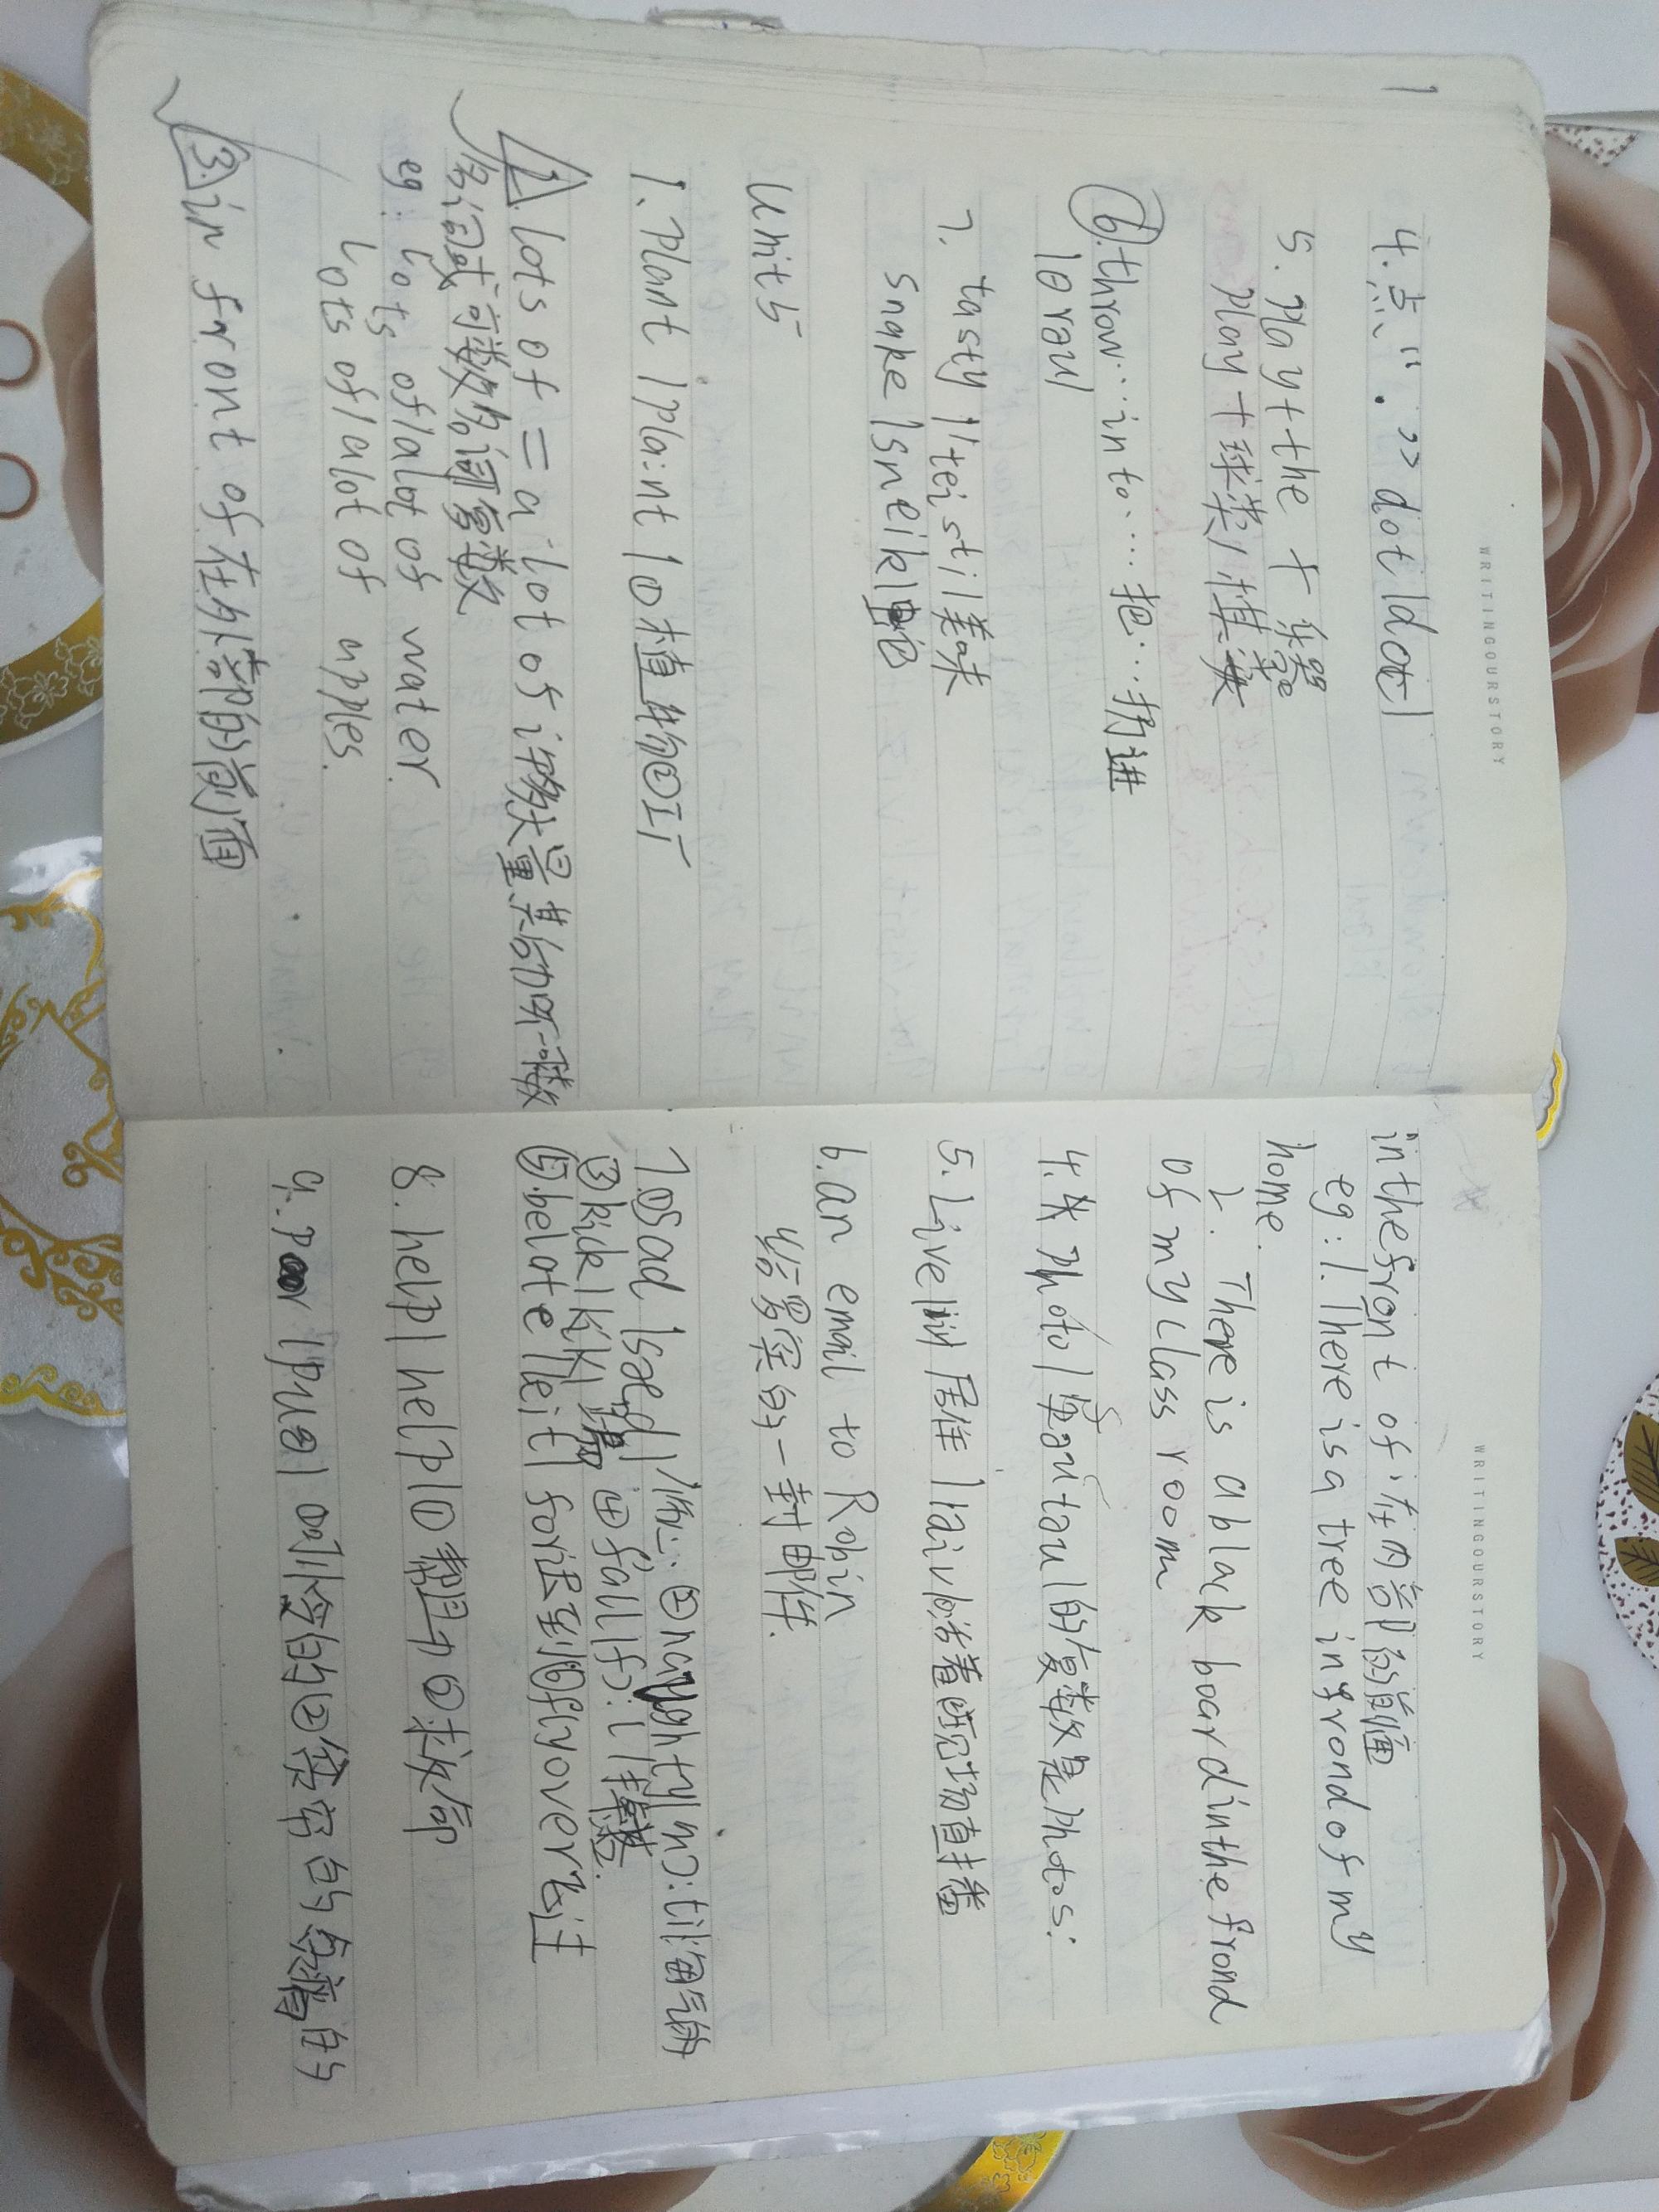 WRITINGOURSTORY
4.点“.”dot|dɒt|
5.play+the+乐器
play+球类/棋类
6.throw…into…把…扔进
|θrəu|
7.tasty|'teisti|美味
snake|sneik|蛇
Unit5
1.plant|pla:nt|①植物②工厂
2.lots of=a lot of许多大量其后加所数
名词或可数名词复数
eg:Lots of/alot of water.
Lots of/alot of apples.
3.in front of在外部的前面
WRITINGOURSTORY
in the front of在内部的前面
eg:1.There is a tree in frond of my
home.
2.There is a black board in the frond
of my class room
4.photo|'fəutəu|的复数是photos:
5.Live|liv|居住|laiv|活着现场直播
6.an email to Robin
给罗宾的一封邮件.
7.①Sad|sæd|②naughty|'nɔ:ti|淘气的
③kick|kik|踢④fall|fɔ:l|
⑤be late|leit|for迟到⑥fly over飞过
8.help|help|①帮助②求救
9.Poor|puə|①可怜的②贫穷的